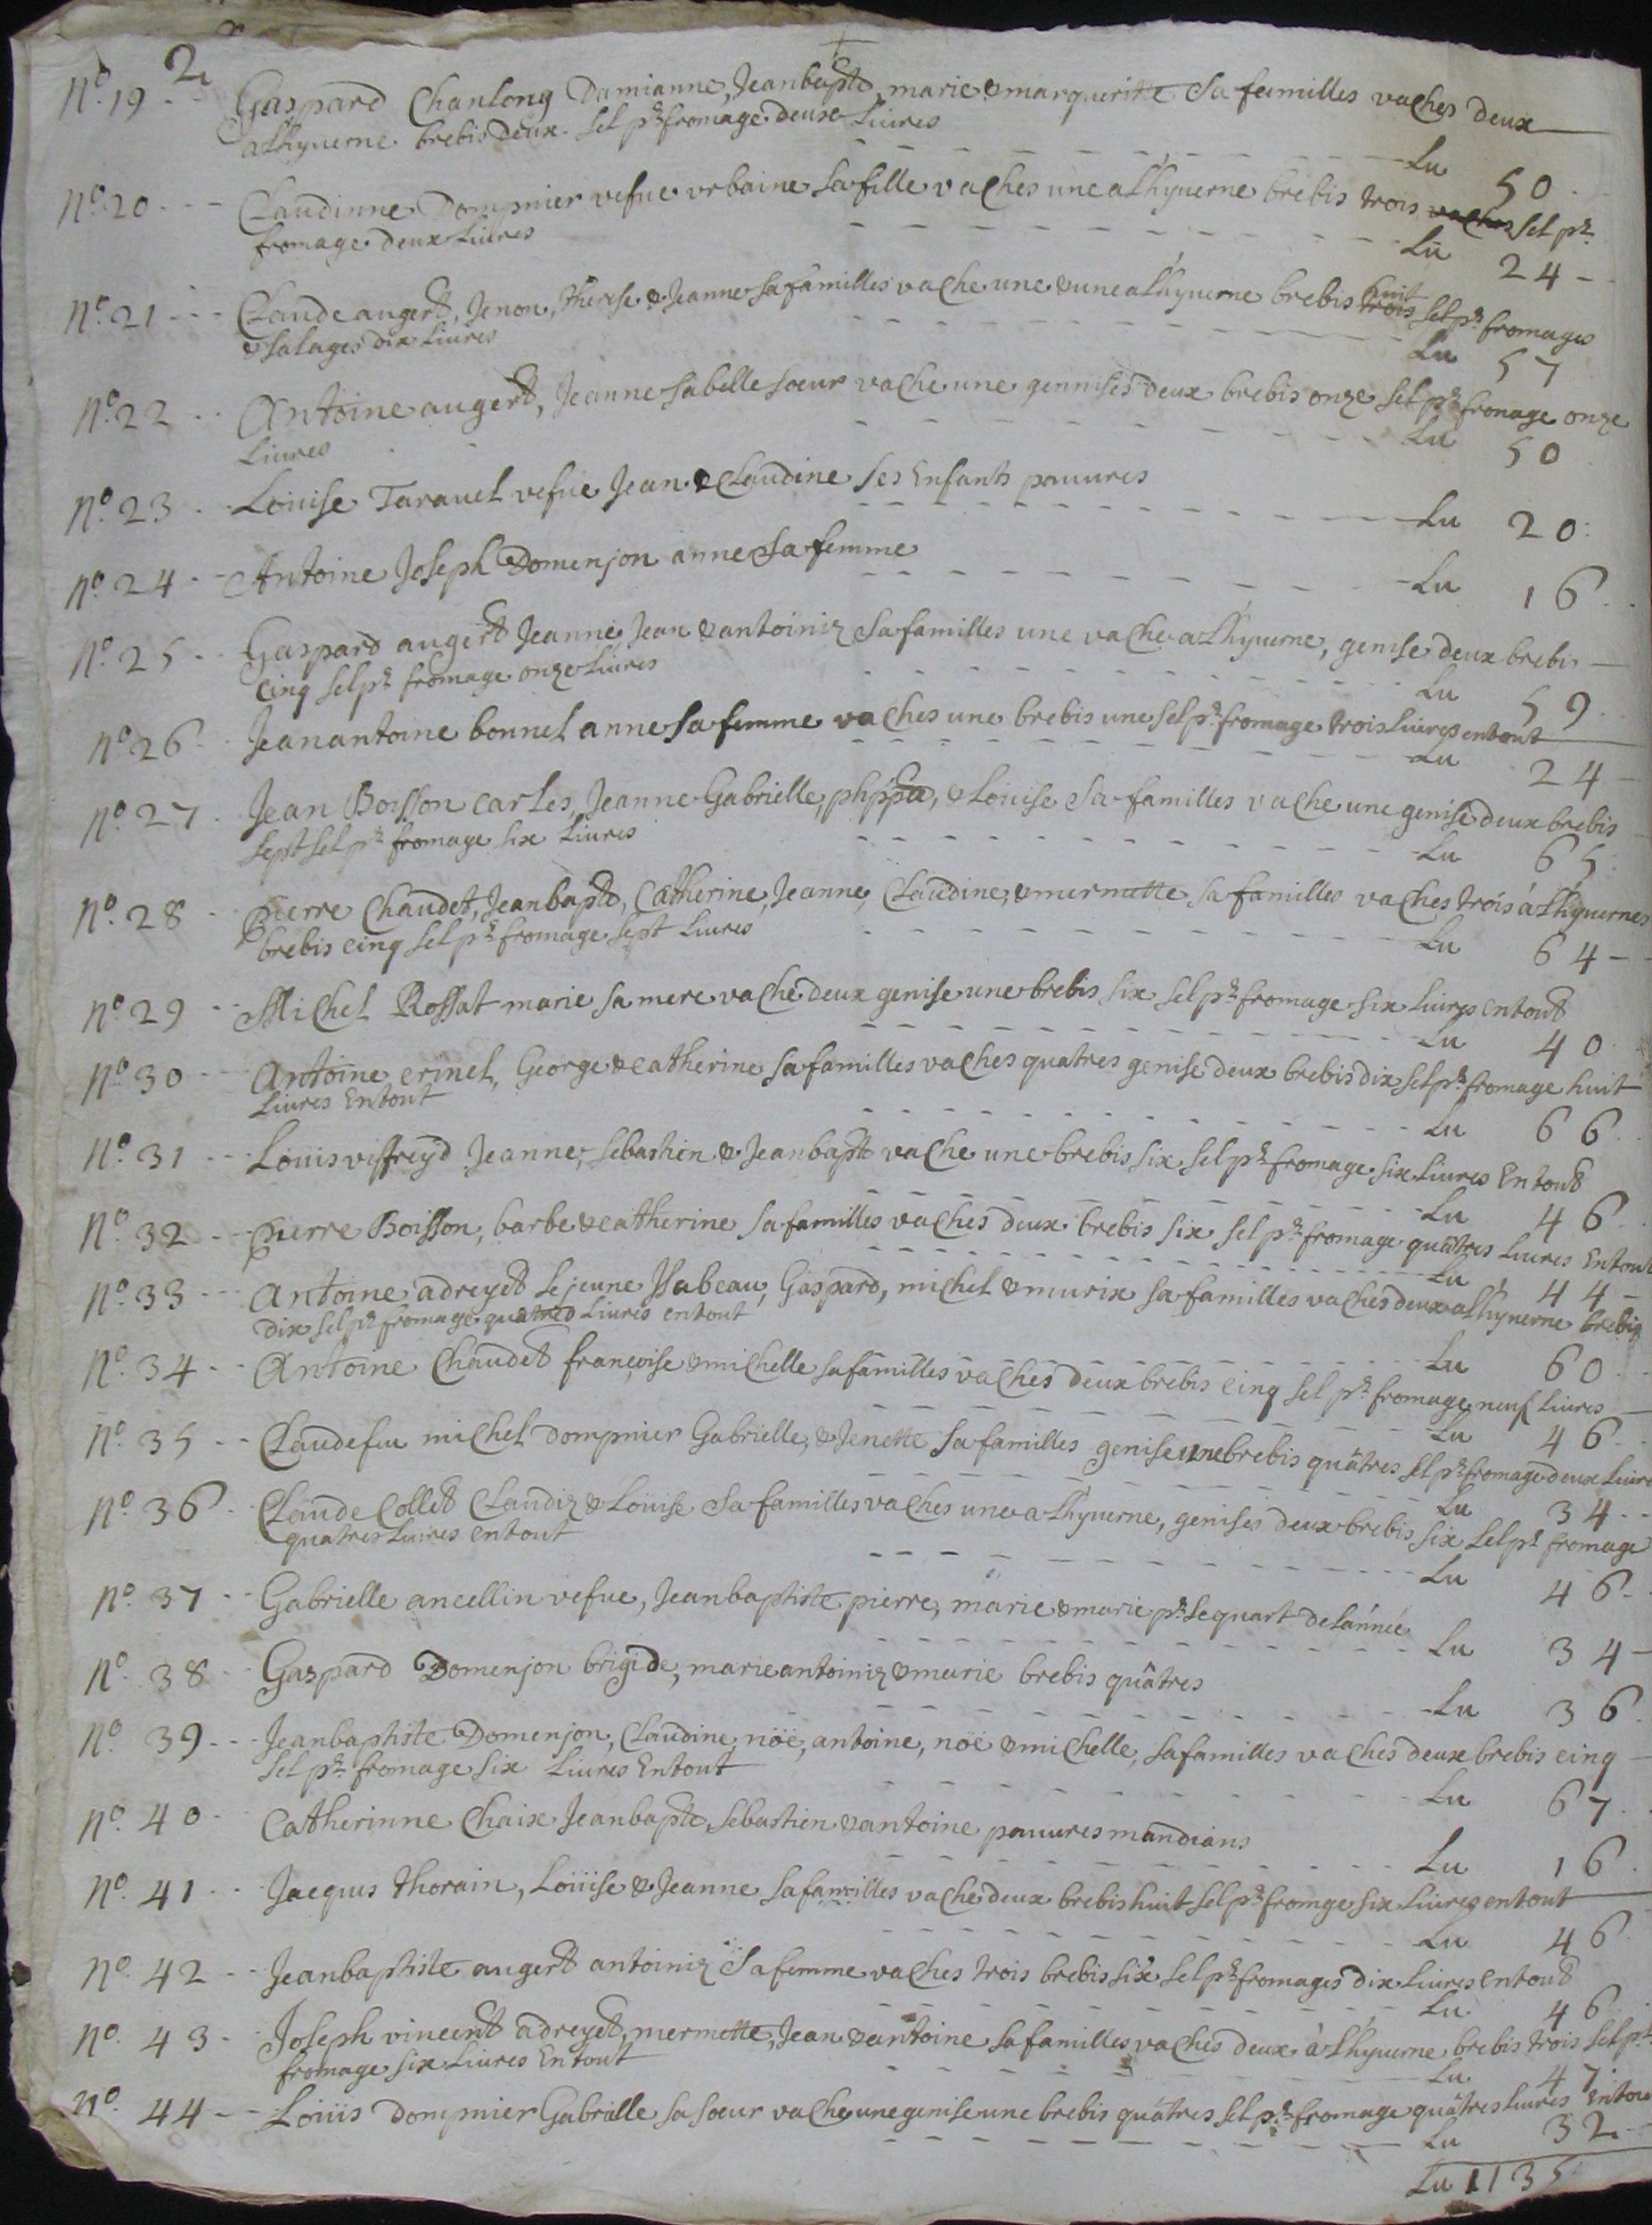 2
N.º 19 - - Gaspard Chanlong Damianne, Jeanbapte, marie & margueritte Sa familles vaches deux
alhyuerne brebis Deux. Sel pr fromage deux Liures
Lu 50
N.º 20 - - - Claudinne Dompnier vefue vrbaine Sa fille vaches une a Lhyuerne brebis trois vaches Sel pr
fromage deux Liures
Lu 24 -
N.º 21 - - - Claude augert, Jenon, Therese & Jeanne Sa familles vache une & une a Lhyuerne brebis trois huit Sel pr fromages
& Salages dix Liures
Lu 57
N.º 22 - - Antoine augert, Jeanne Sa belle Soeur vache une gennises deux brebis onze Sel pr fromage onze
Liures
Lu 50
N.º 23 - Louise Tarauel vefue Jean & Claudine Ses Enfants pauures
Lu 20
N.º 24 - - Antoine Joseph Domenjon anne Sa femme
Lu 16
N.º 25 - - Gaspard augert Jeanne, Jean & antoiniz Sa familles une vache a Lhyuerne, genise deux brebis
cinq Sel pr fromage onze Liures
Lu 59
N.º 26 - Jean antoine bonnel anne Sa femme vaches une brebis une Sel pr fromage trois Liures entout
Lu 24 -
N.º 27 - Jean Boisson carles, Jeanne Gabrielle, & Louise Sa familles vache une genise deux brebis
Sept Sel pr fromage Six Liures
Lu 65
N.º 28 - pierre Chaudet, Jeanbapte, Catherine, Jeanne, Claudine, & mermette Sa familles vaches trois á Lhyuernes
brebis cinq Sel pr fromage Sept Liures
Lu 64 -
N.º 29 - - Michel Rossat marie Sa mere vache deux genise une brebis Six Sel pr fromage Six Liures entout
Lu 40
N.º 30 - - Antoine crinel, George & catherine Sa familles vaches quatres genise deux brebis dix Sel pr fromage huit
Liures Entout
Lu 66
N.º 31 - - Louis viffreyd Jeanne, Sebastien & Jeanbapte vache une brebis Six Sel pr fromage Six Liures Entout
Lu 46
N.º 32 - - pierre Boisson, barbe & catherine Sa familles vaches deux brebis Six Sel pr fromage quâtres Liures Entout
Lu 44 -
N.º 33 - - Antoine adreyet Lejeune Isabeau, Gaspard, michel & murix Sa familles vaches deux a Lhyuerne brebis
Dix Sel pr fromage quatres Liures entout
Lu 60
N.º 34 - - Antoine Chaudet françoise & michelle Sa familles vaches deux brebis cinq Sel pr fromage neuf Liures
Lu 46
N.º 35 - - Claude feu michel dompnier Gabrielle, & Jenette Sa familles genise une brebis quâtres Sel pr fromage deux Liure
Lu 34 - -
N.º 36 - Claude Collet Claudiz & Louise Sa familles vaches une a Lhyuerne, genises deux brebis Six Sel pr fromage
quatres Liures entout
Lu 46 -
N.º 37 - - Gabrielle ancellin vefue, Jeanbaptiste pierre, marie & marie pr Le quart de Lánnée
Lu 34 -
N.º 38 - Gaspard Domenjon brigide, marie antoiniz & marie brebis quâtres
Lu 36
N.º 39 - - Jeanbaptiste Domenjon, Claudine, nöë, antoine, nöë & michelle, Sa familles vaches deux brebis cinq
Sel pr fromage Six Liures Entout
Lu 67
N.º 40 - Catherinne Chaix Jeanbapte, Sebastien & antoine pauures mandians
Lu 16
N.º 41 - - Jacques thorain, Louise & Jeanne Sa familles vache deux brebis huit Sel pr fromge Six Liures entout
Lu 46
N.º 42 - - Jeanbaptiste augert antoiniz Sa femme vaches trois brebis Six Sel pr fromages dix Liures Entout
Lu 46
N.º 43 - Joseph vincent adreyet, mermette, Jean & antoine Sa familles vaches deux á Lhyuerne brebis trois Sel pr
fromage Six Liures Entout
Lu 47
N.º 44 - - Louis Dompnier Gabrielle Sa Soeur vache une genise une brebis quâtres Sel pr fromage quâtres Liures Entou
Lu 32 -
Lu 1135